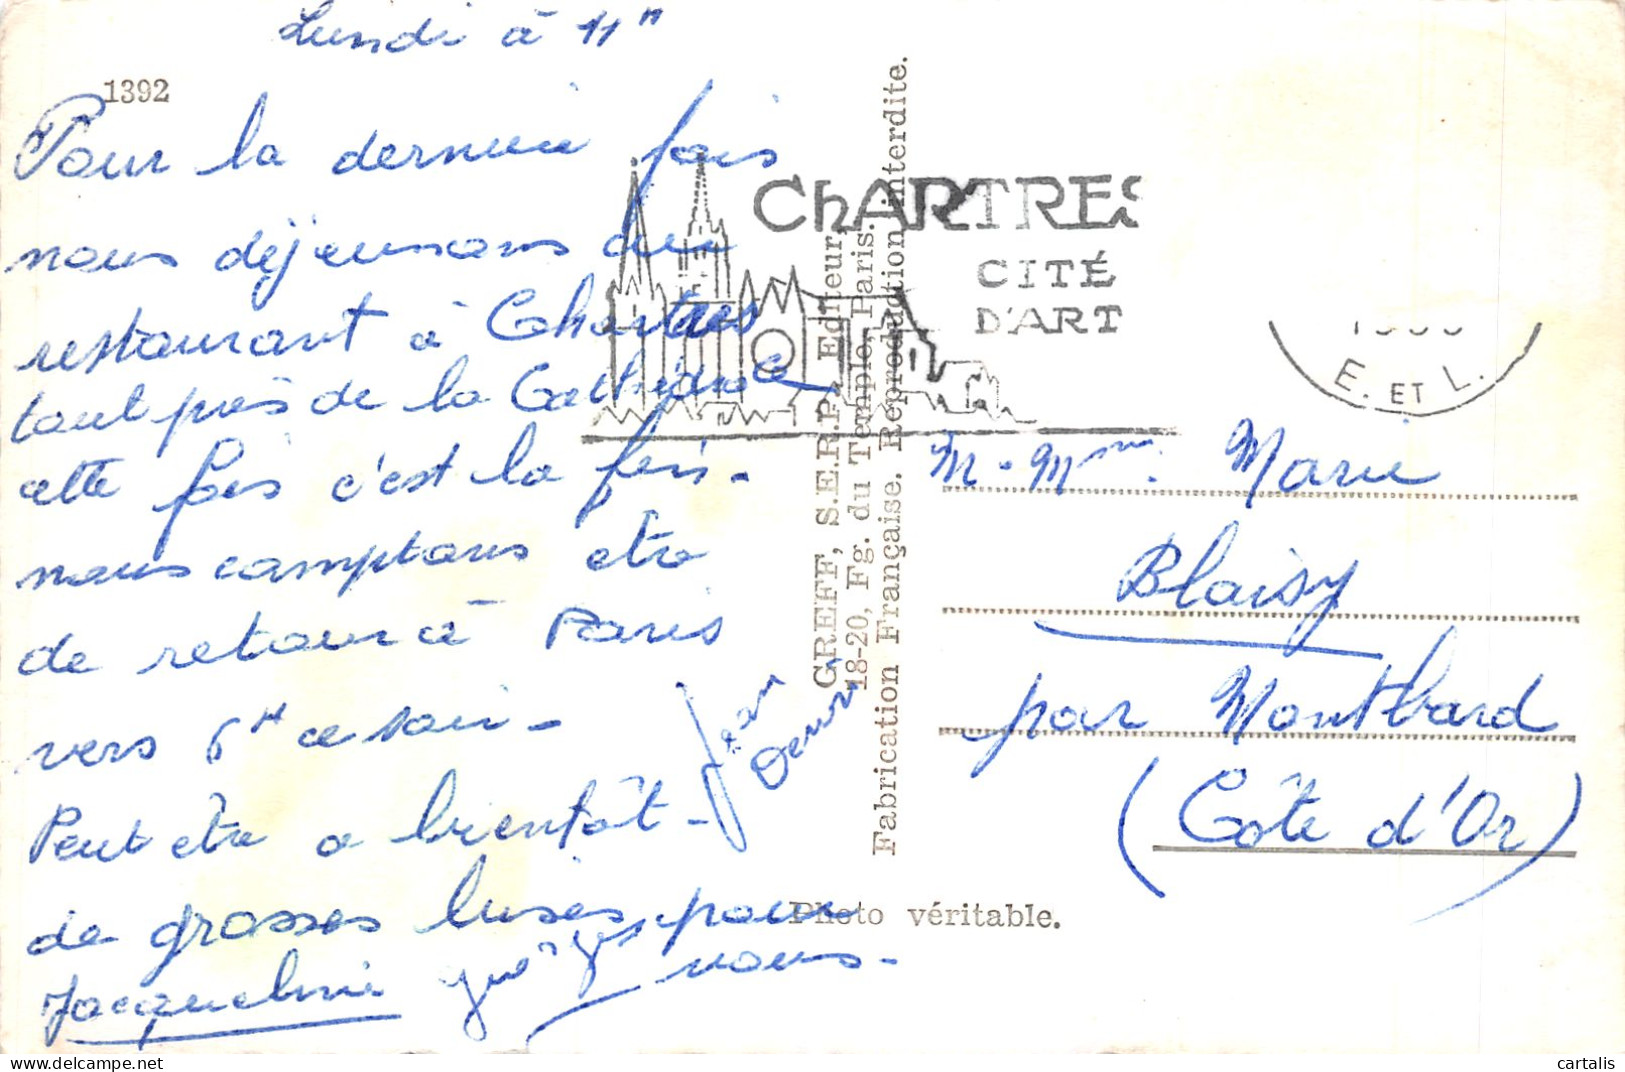 Lundi à 11 H
1392
Pour la derniere fois
nous déjeunons au
restaurant à Chartres
tout près de la Cathédrale
cette fois c'est la fin -
nous comptons etre
de retour à Paris
vers 6 H ce soir -
Peut etre a bientôt -
de grosses bises pour
Jacqueline nous -
Jean
CHARTRES
CITÉ
D'ART
E. ET L.
GREFF, S.E.R.P., Editeur,
18-20, Fg. du Temple, Paris.
Fabrication Française. Reproduction interdite.
M - Mme. Marie
Blaisy
par Montbard
(Côte d'Or)
Photo véritable.
cartalis